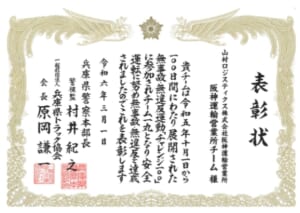 表彰状
山村ロジスティクス株式会社阪神運輸営業所
阪神運輸営業所チーム 様
貴チームは令和五年十月一日から
一〇〇日間にわたり展開された
無事故・無違反運動「チャレンジ一〇〇」
に参加されチーム一丸となり安全
運転に努め無事故・無違反を達成
されましたのでこれを表彰します
令和六年三月一日
兵庫県警察本部長
警視監 村井紀之
一般社団法人 兵庫県トラック協会
会長 原岡謙一